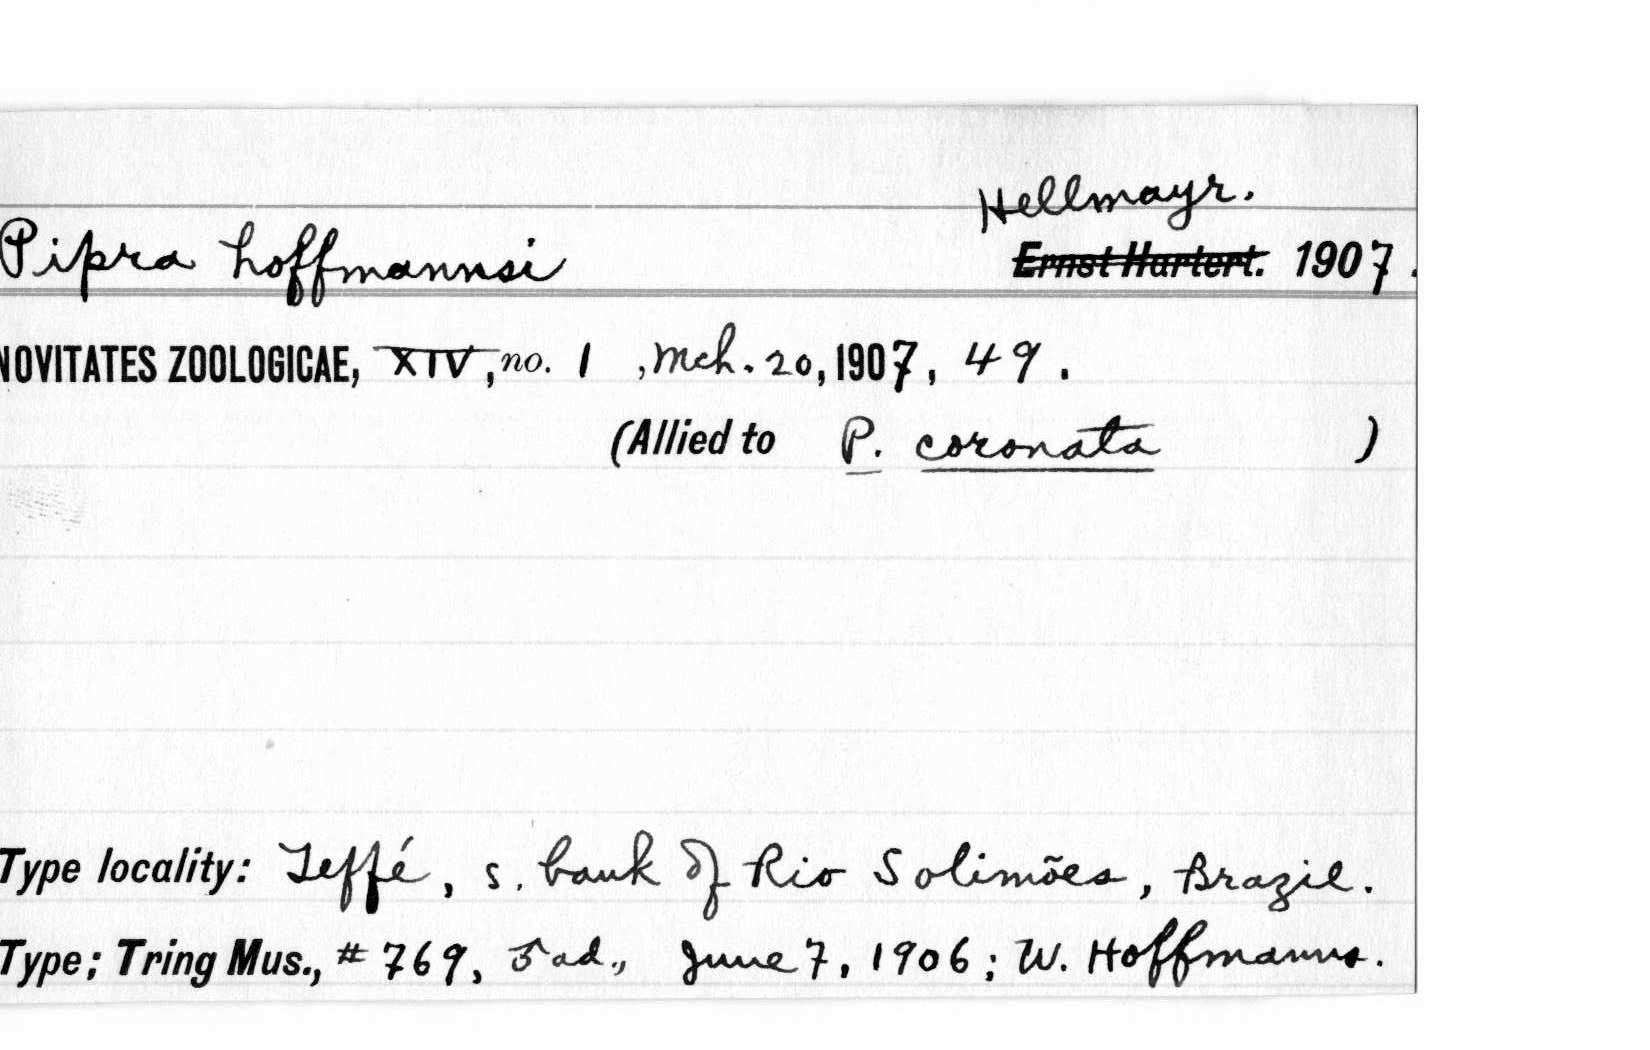 Hellmayr.
Pipra hoffmannsi Ernst Hartert. 1907.
NOVITATES ZOOLOGICAE, XIV, no. 1, Mch. 20, 1907, 49.
(Allied to P. coronata )
Type locality: Teffé, s. bank of Rio Solimões, Brazil.
Type; Tring Mus., # 769, ♂ ad., June 7, 1906; W. Hoffmanns.